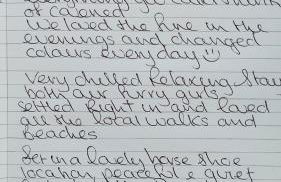 of catered
we loved the fire in the
evenings and changed
colours everyday ☺
Very chilled Relaxing Stay
both our furry girls
settled right in and loved
all the local walks and
Beaches
Set in a lovely house show
location, peaceful & quiet